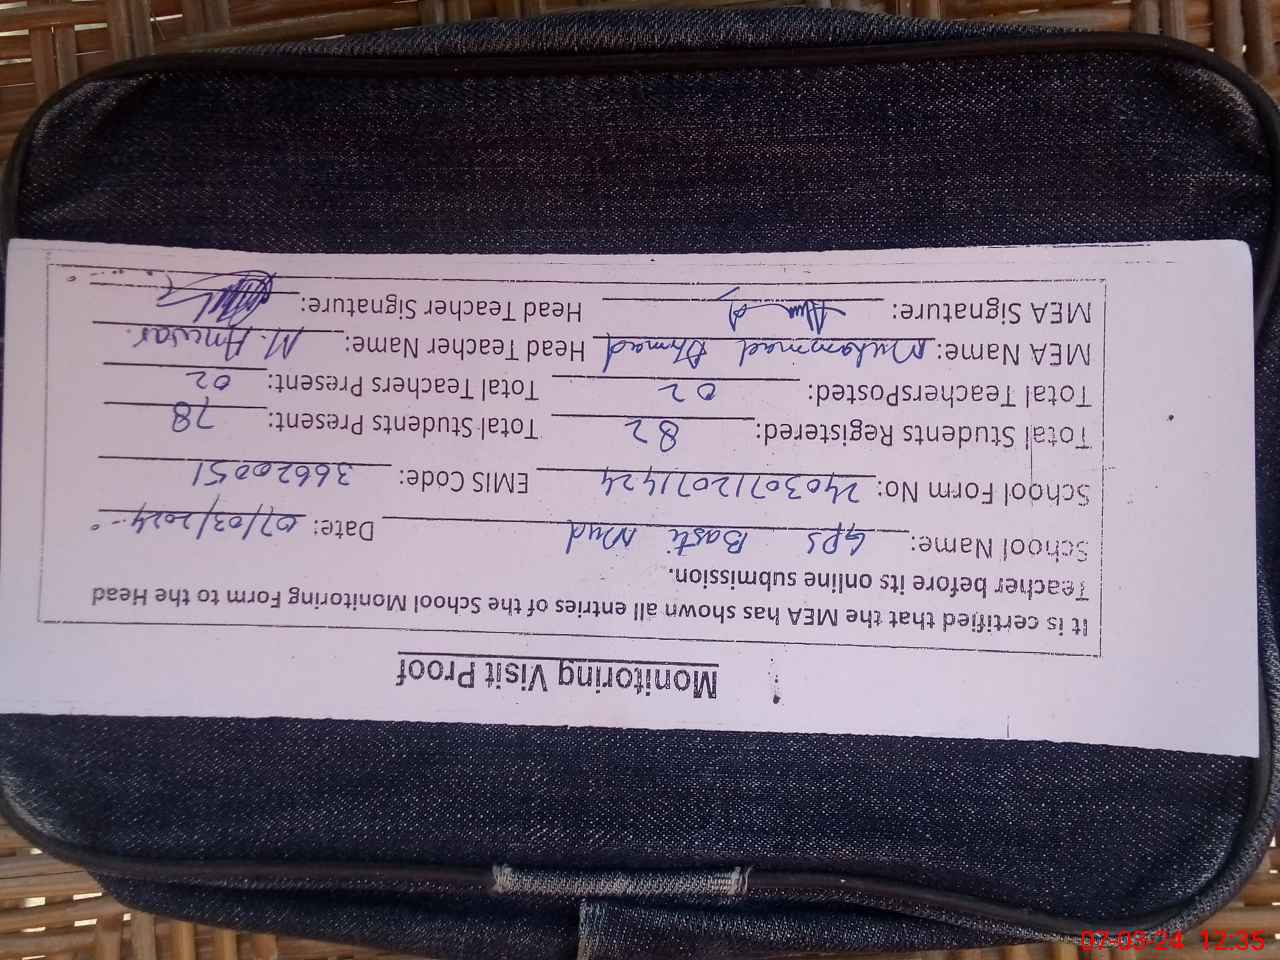 Monitoring Visit Proof
It is certified that the MEA has shown all entries of the School Monitoring Form to the Head
Teacher before its online submission.
School Name: GPS Basti Mud Date: 07/03/2024
School Form No: 240307120711424 EMIS Code: 36620051
Total Students Registered: 82 Total Students Present: 78
Total TeachersPosted: 02 Total Teachers Present: 02
MEA Name: Muhammad Ahmad Head Teacher Name: M. Anwar.
MEA Signature: Head Teacher Signature:
07-03-24 12:35